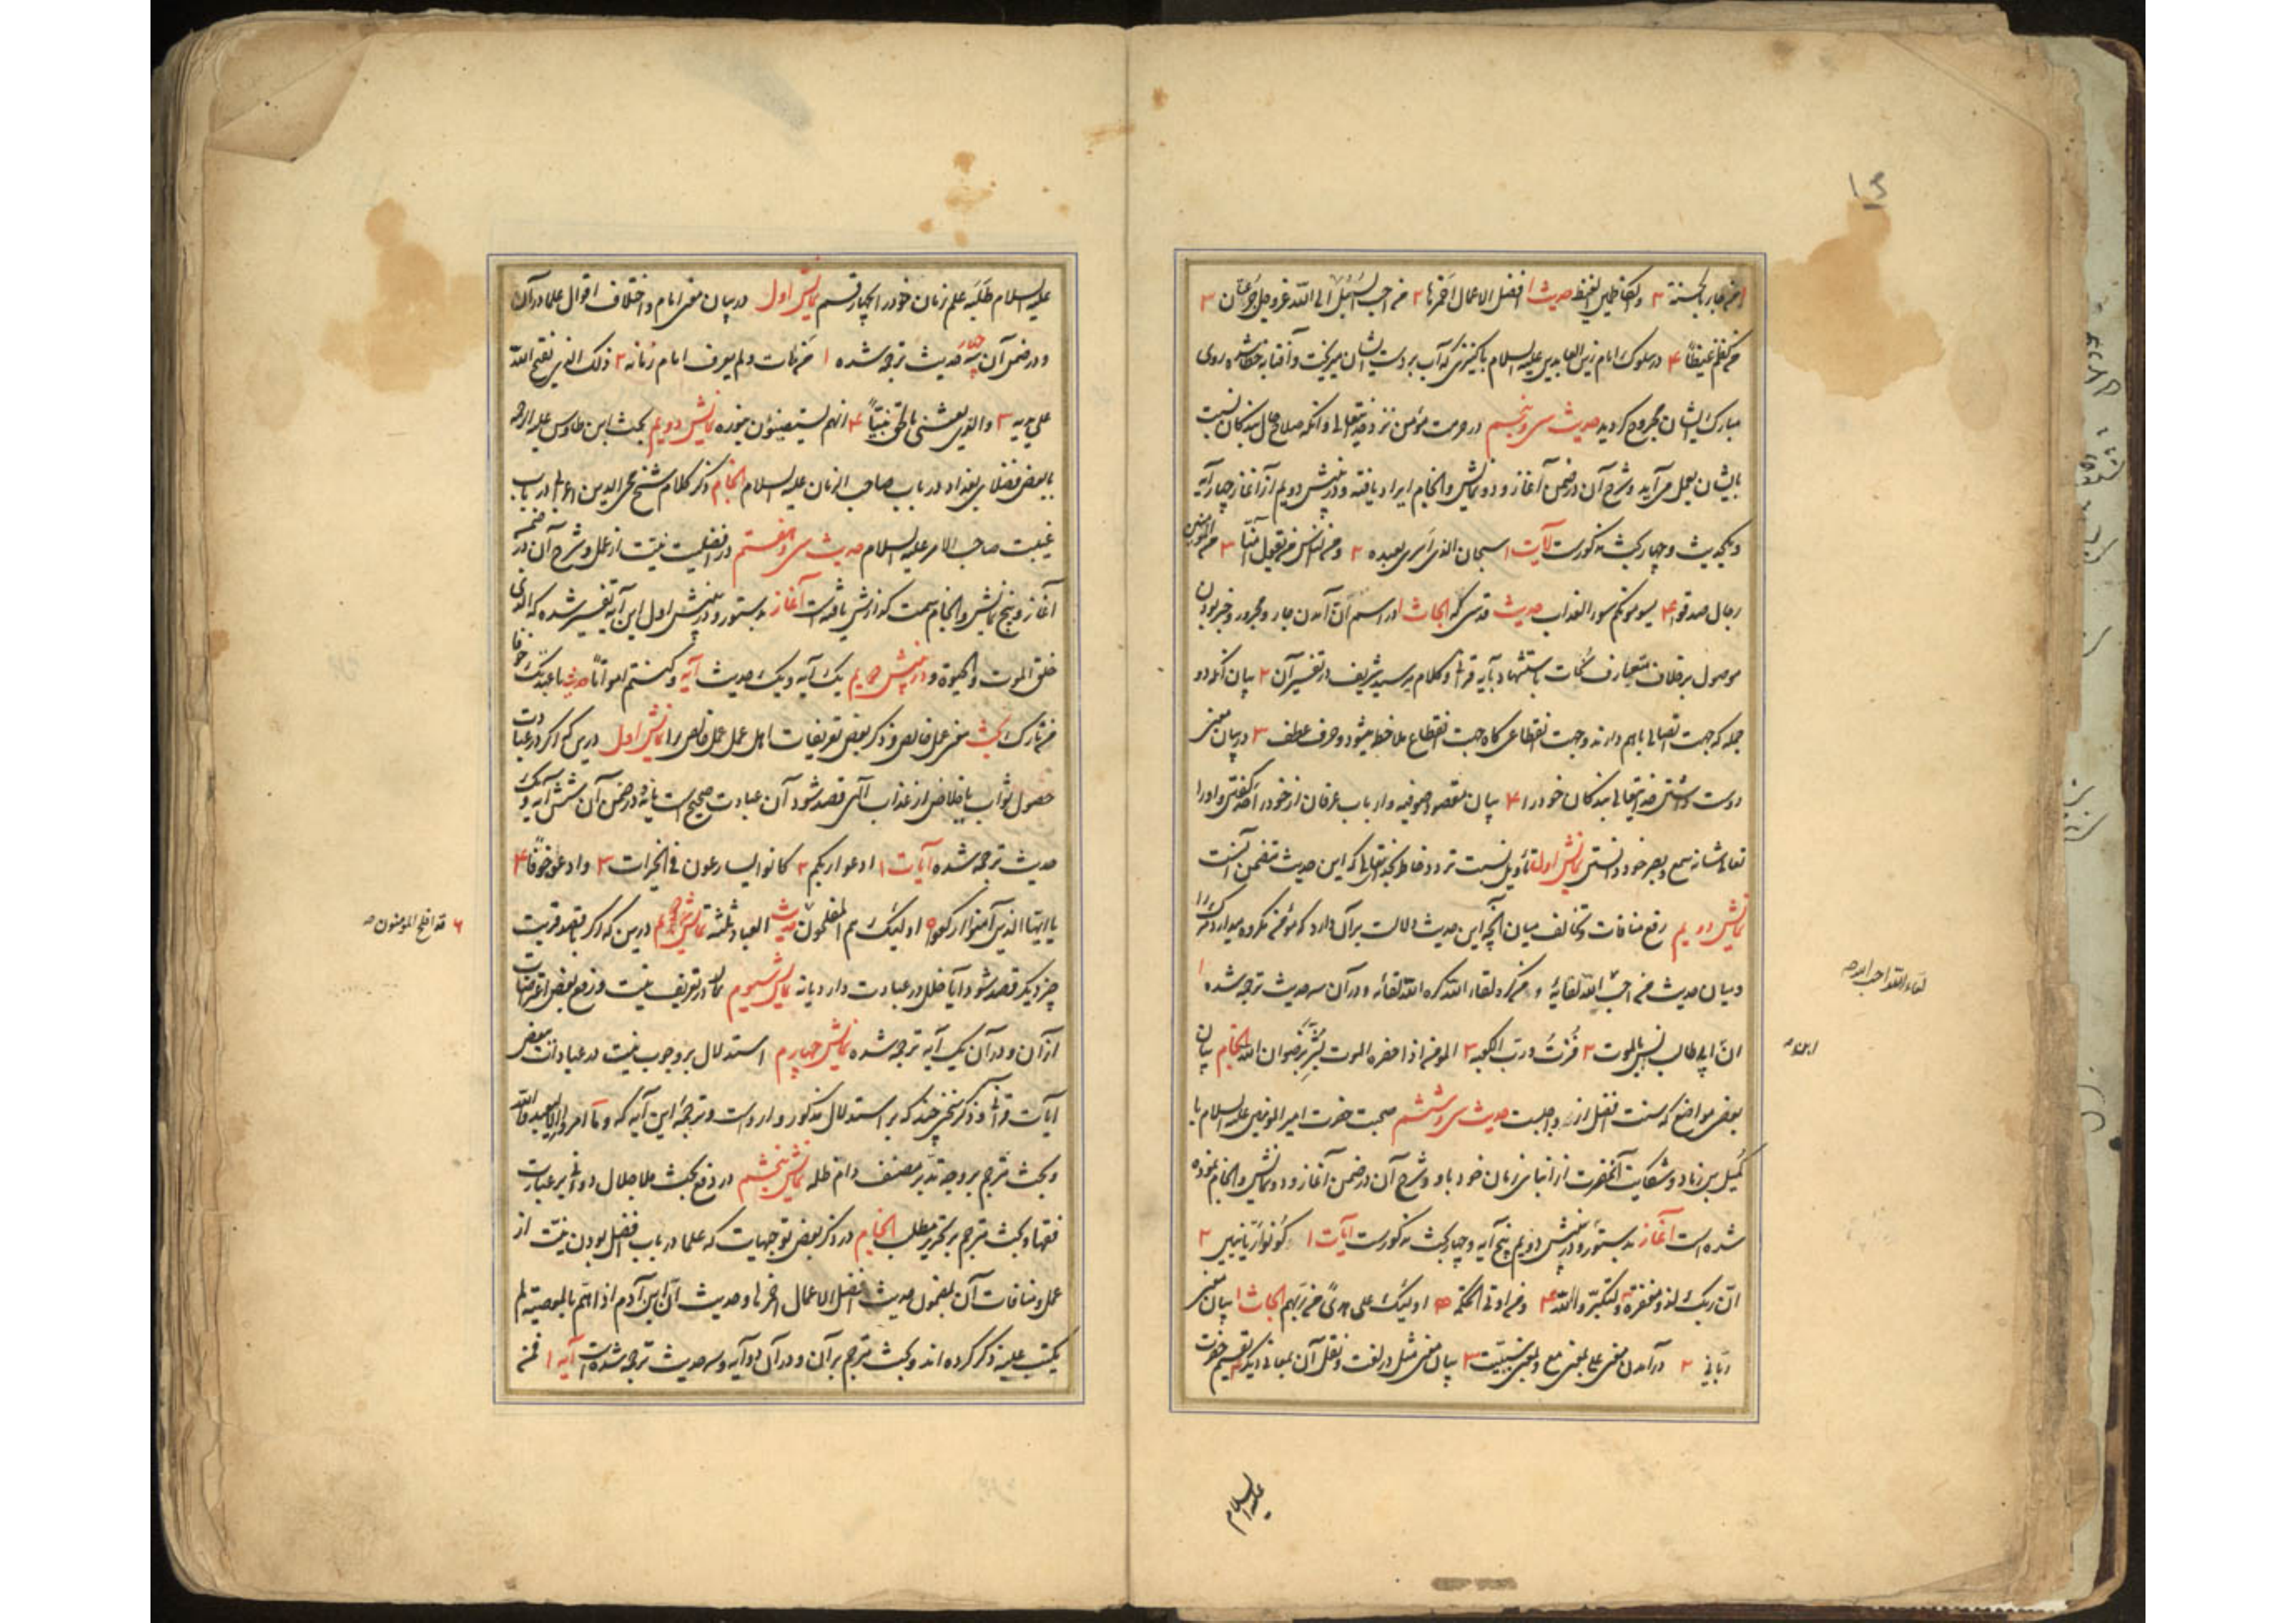 من جاء بالحسنة ۲ والکاظمین الغیظ حدیث ۱ افضل الاعمال احمزها ۲ من احب السبیل الی الله عز وجل جرعتان ۳
من کظم غیظاً ۴ در سلوک امام زین العابدین علیه السلام با کنیزی که آب بر دست ایشان میریخت و آفتابه خطا شده روی
مبارک ایشان مجروح گردید حدیث سی و پنجم در حرمت مؤمن نزد خدایتعالی و آنکه صلاح حال بندگان نسبت
بایشان بعمل می‌آید و شرح آن در ضمن آغاز و دو نمایش و انجام ایراد یافته و در پیش دویم از آغاز چهار آیه
و یکحدیث و چهار بحث مذکورست آیات ۱ سبحان الذی اسری بعبده ۲ و من الناس من یقول آمنا ۳ من المؤمنین
رجال صدقوا ۴ یسومونکم سوء العذاب حدیث قدسی که ابحاث ۱ در اسم ان آمدن جار و مجرور و خبر بودن
موصول بر خلاف متعارف نحات باستشهاد بآیه قرآنی و کلام میر سید شریف در تفسیر آن ۲ بیان آنکه دو
جمله که جهت اتصالی باهم دارند و جهت انقطاعی گاه جهت انقطاع ملاحظ میشود و حرف عطف ۳ در بیان معنی
دوست داشتن خدایتعالی بندگان خود را ۴ بیان مقصد صوفیه و ارباب عرفان از خود را حق گفتن و او را
تعالی شانه سمع و بصر خود دانستن نمایش اول تاویل نسبت تردد خاطر بخدایتعالی که این حدیث متضمن آنست
نمایش دویم رفع منافات و تخالف میان آنچه این حدیث دلالت بر آن دارد که مؤمن مکروه میدارد مرگ را
و میان حدیث من احب الله لقائه و من کره لقاء الله کره الله لقائه و در آن سه حدیث ترجمه شده ۱
لقاء الله احب الله صح
ان ابی طالب انس بالموت ۲ فزت و رب الکعبه ۳ المومن اذا حضره الموت بشر برضوان الله انجام بیان
ابن صح
بعضی مواضع که سنت افضل از واجبست حدیث سی و ششم صحبت حضرت امیر المومنین علیه السلام با
کمیل بن زیاد و شکایت آنحضرت از ابنای زمان خود باو و شرح آن در ضمن آغاز و دو نمایش و انجام نموده
شده است آغاز بدستور و در پیش دویم پنج آیه و چهار بحث مذکورست آیات ۱ کونوا ربانیین ۲
ان ربک لذو مغفرة ۳ ولتکبروا الله ۴ و من اوتی الحکمة ۵ اولئک علی هدی من ربهم ابحاث ۱ بیان معنی
ربانی ۲ در آمدن معنی علی بمعنی مع و بمعنی سببیت ۳ بیان معنی مثل در لغت و نقل آن بمعانی دیگر ۴ تقسیم حضرت
علیه السلام
علیه السلام طلبه علم زمان خود را بچهار قسم نمایش اول در بیان معنی امام و اختلاف اقوال علما در آن
و در ضمن آن چهار حدیث ترجمه شده ۱ من مات ولم یعرف امام زمانه ۲ ذلک الذی یفتح الله
علی یدیه ۳ والذی بعثنی بالحق نبیاً ۴ انهم لیستضیئون بنوره نمایش دویم بحث ابن طاوس علیه الرحمه
با بعض فضلای بغداد در باب صاحب الزمان علیه السلام انجام ذکر کلام شیخ محی الدین اعرابی در باب
غیبت صاحب الامر علیه السلام حدیث سی و هفتم در افضلیت نیت از عمل و شرح آن در ضمن
آغاز و پنج نمایش و انجام سمت گذارش یافته است آغاز بدستور و در پیش اول این آیه تفسیر شده که الذی
خلق الموت والحیوة و در پیش دویم یک آیه و یک حدیث آیه و کنتم امواتاً حدیث ما عبدتک خوفا
من نارک بحث معنی عمل خالص و ذکر بعض تعریفات اهل عمل عمل خالص را نمایش اول درین که اگر در عبادت
حصول ثواب یا خلاصی از عذاب الهی قصد شود آن عبادت صحیح است یا نه و در ضمن آن شش آیه و یک
حدیث ترجمه شده آیات ۱ ادعوا ربکم ۲ کانوا یسارعون فی الخیرات ۳ وادعوه خوفا ۴
یا ایها الذین آمنوا ارکعوا ۵ اولئک هم المفلحون حدیث العباد ثلثه نمایش دویم درین که اگر با قصد قربت
۶ قد افلح المومنون صح
چیز دیگر قصد شود آیا خلل در عبادت دارد یا نه نمایش سیوم در تعریف نیت و رفع بعض اعتراضات
از آن و در آن یک آیه ترجمه شده نمایش چهارم استدلال بر وجوب نیت در عبادات ببعض
آیات قرآنی و ذکر سخنی چند که بر استدلال مذکور وارد است و ترجمه این آیه که و ما امروا الا لیعبدوا الله
و بحث مترجم بر وجه تدبر مصنف دام ظله نمایش پنجم در دفع بحث ملا جلال دوانی بر عبارت
فقها و بحث مترجم بر تحریر مطلب انجام در ذکر بعض توجیهات که علما در باب افضل بودن نیت از
عمل و منافات آن بمضمون حدیث افضل الاعمال احمزها و حدیث ان ابن آدم اذا هم بالمعصیه لم
یکتب علیه ذکر کرده اند و بحث مترجم بر آن و در آن دو آیه و سه حدیث ترجمه شده است آیه ۱ فمن